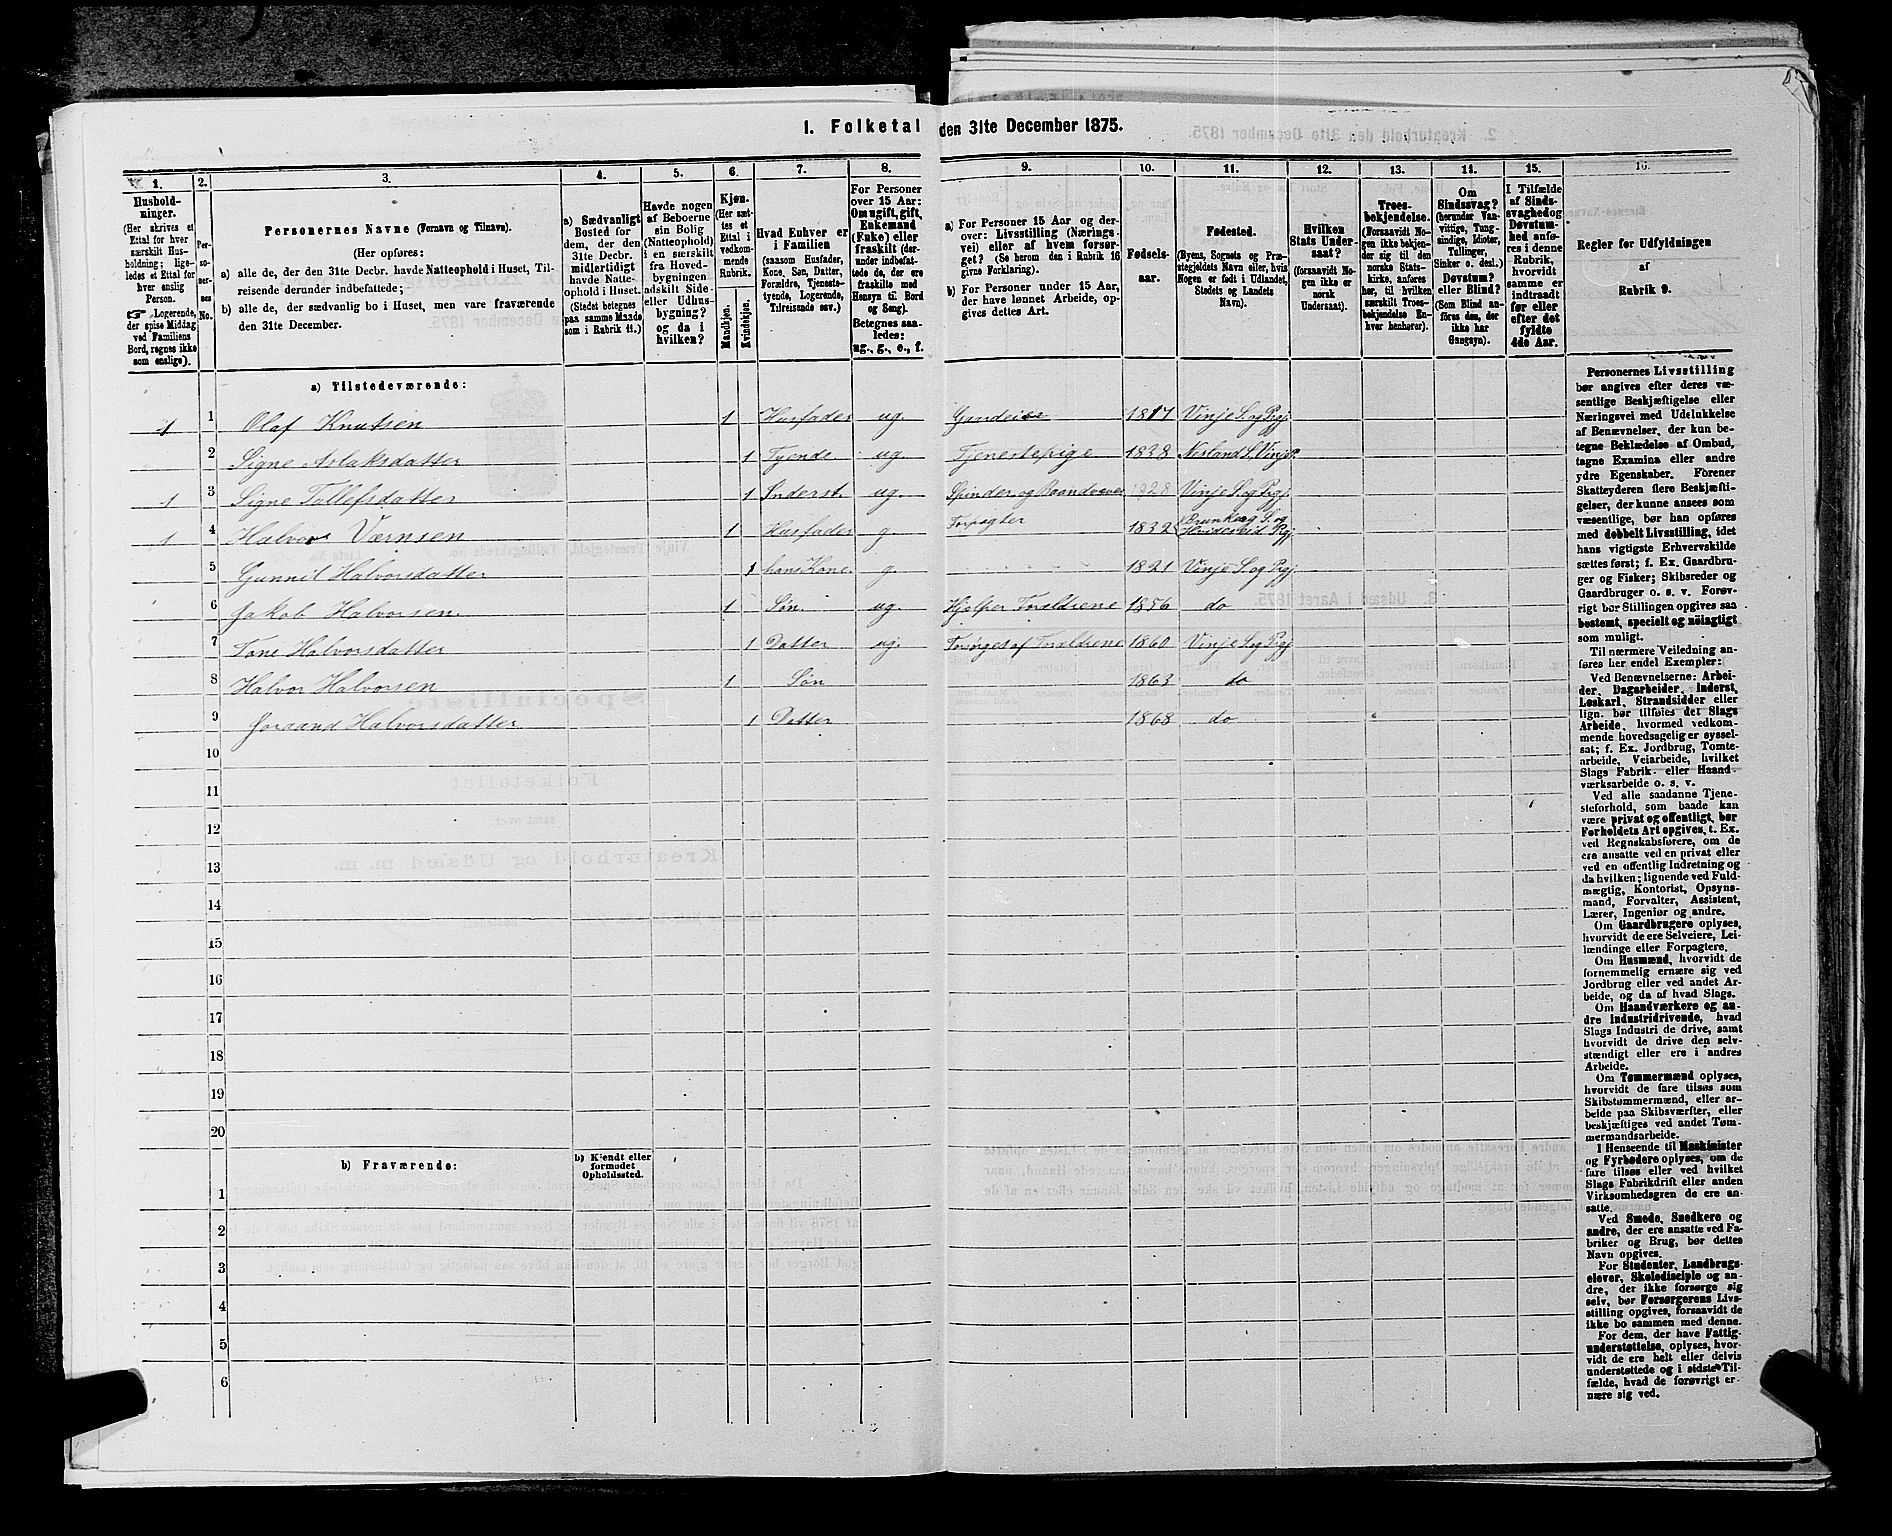 1. Folketal den 31te December 1875.
1.
Hushold-
ninger.
(Her skrives et
Ettal for hver
særskilt Hus-
holdning; lige-
ledes et Ettal for
hver enslig
Person.
☞ Logerende,
der spise Middag
ved Familiens
Bord, regnes ikke
som enslige).
2.
Per-
so-
ner-
nes
No.
3.
Personernes Navne (Fornavn og Tilnavn).
(Her opføres:
a) alle de, der den 31te Decbr. havde Natteophold i Huset, Til-
reisende derunder indbefattede;
b) alle de, der sædvanlig bo i Huset, men vare fraværende
den 31te December.
4.
a) Sædvanligt
Bosted for
dem, der den
31te Decbr.
midlertidigt
havde Natte-
ophold i Huset.
(Stedet betegnes
paa samme Maade
som i Rubrik 11.)
5.
Havde nogen
af Beboerne
sin Bolig
(Natteophold)
i en særskilt
fra Hoved-
bygningen
adskilt Side-
eller Udhus-
bygning?
og da i
hvilken?
6.
Kjøn.
(Her sæt-
tes et
Ettal i
vedkom-
mende
Rubrik.
Mandkjøn.
Kvindekjøn.
7.
Hvad Enhver er
i Familien
(saasom Husfader,
Kone, Søn, Datter,
Forældre, Tjeneste-
tyende, Logerende,
Tilreisende osv.)
8.
For Personer
over 15 Aar:
Om ugift, gift,
Enkemand
(Enke) eller
fraskilt (der-
under indbefat-
tede de, der ere
fraskilte med
Hensyn til Bord
og Seng).
Betegnes saa-
ledes:
ug., g., e., f.
9.
a) For Personer 15 Aar og der-
over: Livsstilling (Nærings-
vei) eller af hvem forsør-
get? (Se herom den i Rubrik 16
givne Forklaring).
b) For Personer under 15 Aar,
der have lønnet Arbeide, op-
gives dettes Art.
10.
Fødsels-
aar.
11.
Fødested.
(Byens, Sognets og Præ-
stegjeldets Navn eller, hvis
Nogen er født i Udlandet,
Stedets og Landets
Navn).
12.
Hvilken
Stats Under-
saat?
(forsaavidt No-
gen ikke er
norsk
Undersaat).
13.
Troes-
bekjendelse.
(Forsaavidt No-
gen ikke bekjen-
der sig til den
norske Stats-
kirke, anføres
her, til hvilken
særskilt Troes-
bekjendelse En-
hver henhører).
14.
Om
Sindssvag?
(herunder Van-
vittige, Tung-
sindige, Idioter,
Tullinger,
Sinker o. desl.)
Døvstum?
eller Blind?
(Som Blind an-
føres den, der
ikke har
Gangsyn).
15.
I Tilfælde
af Sinds-
svaghed og
Døvstum-
hed anfø-
res i denne
Rubrik,
hvorvidt
samme er
indtraadt
før eller
efter det
fyldte
4de Aar.
16.
Regler for Udfyldningen
af
Rubrik 9.
a) Tilstedeværende:
1 1 Olaf Knutsen 1 Husfader ug. Gaardeier 1817 Vinje S. og Prgj.
2 Signe Aslaksdatter 1 Tyende ug. Tjenestepige 1838 Nesland S. Vinje P.
1 3 Signe Tollefsdatter 1 Inderst. ug. Spinder og Baandvæver 1828 Vinje S. og Prgj.
1 4 Halvor Værnsen 1 Husfader g Forpagter 1832 Brunkeberg S. og Hvideseid Prgj.
5 Gunnil Halvorsdatter 1 hans Kone g. 1821 Vinje S. og Prgj.
6 Jakob Halvorsen 1 Søn. ug. Hjelper Forældrene 1856 do
7 Tone Halvorsdatter 1 Datter ug. Forsørges af Forældrene 1860 Vinje S. og Prgj
8 Halvor Halvorsen 1 Søn 1863 do
9 Joraand Halvorsdatter 1 Datter 1868 do
10
11
12
13
14
15
16
17
18
19
20
b) Fraværende:
b) Kjendt eller
formodet
Opholdssted.
1
2
3
4
5
6
Personernes Livsstilling
bør angives efter deres væ-
sentlige Beskjæftigelse eller
Næringsvei med Udelukkelse
af Benævnelser, der kun be-
tegne Beklædelse af Ombud,
tagne Examina eller andre
ydre Egenskaber. Forener
Skatteyderen flere Beskjæfti-
gelser, der kunne ansees som
væsentlige, bør han opføres
med dobbelt Livsstilling, idet
hans vigtigste Erhvervskilde
sættes først; f. Ex. Gaardbru-
ger og Fisker; Skibsreder og
Gaardbruger o. s. v. Forøv-
rigt bør Stillingen opgives saa
bestemt, specielt og nøiagtigt
som muligt.
Til nærmere Veiledning an-
føres her endel Exempler:
Ved Benævnelserne: Arbei-
der, Dagarbeider, Inderst,
Løskarl, Strandsidder eller
lign. bør tilføies det Slags
Arbeide, hvormed vedkom-
mende hovedsagelig er syssel-
sat; f. Ex. Jordbrug, Tomte-
arbeide, Veiarbeide, hvilket
Slags Fabrik- eller Haand-
værksarbeide o. s. v.
Ved alle saadanne Tjene-
steforhold, som baade kan
være privat og offentligt, bør
Forholdets Art opgives, t. Ex.
ved Regnskabsførere, om de
ere ansatte ved en privat eller
ved en offentlig Indretning og
da hvilken; lignende ved Fuld-
mægtig, Kontorist, Opsyns-
mand, Forvalter, Assistent,
Lærer, Ingeniør og andre.
Om Gaardbrugere oplyses,
hvorvidt de ere Selveiere, Lei-
lændinge eller Forpagtere.
Om Husmænd, hvorvidt de
fornemmelig ernære sig ved
Jordbrug eller ved andet Ar-
beide, og da af hvad Slags.
Om Haandværkere og an-
dre Industridrivende, hvad
Slags Industri de drive, samt
hvorvidt de drive den selv-
stændigt eller ere i andres
Arbeide.
Om Tømmermænd oplyses,
hvorvidt de fare tilsøs som
Skibstømmermænd, eller ar-
beide paa Skibsværfter, eller
beskjæftiges ved andet Tøm-
mermandsarbeide.
I Henseende til Maskinister
og Fyrbødere oplyses, om de
fare tilsøs eller ved hvilket
Slags Fabrikdrift eller anden
Virksomhedsgren de ere an-
satte.
Ved Smede, Snedkere og
andre, der ere ansatte ved Fa-
briker og Brug, bør dettes
Navn opgives.
For Studenter, Landbrugs-
elever, Skoledisciple og an-
dre, der ikke forsørge sig
selv, bør Forsørgerens Livs-
stilling opgives, forsaavidt de
ikke bo sammen med denne.
For dem, der have Fattig-
understøttelse, oplyses, hvor-
vidt de ere helt eller delvis
understøttede og i sidste Til-
fælde, hvad de forøvrigt er-
nære sig ved.